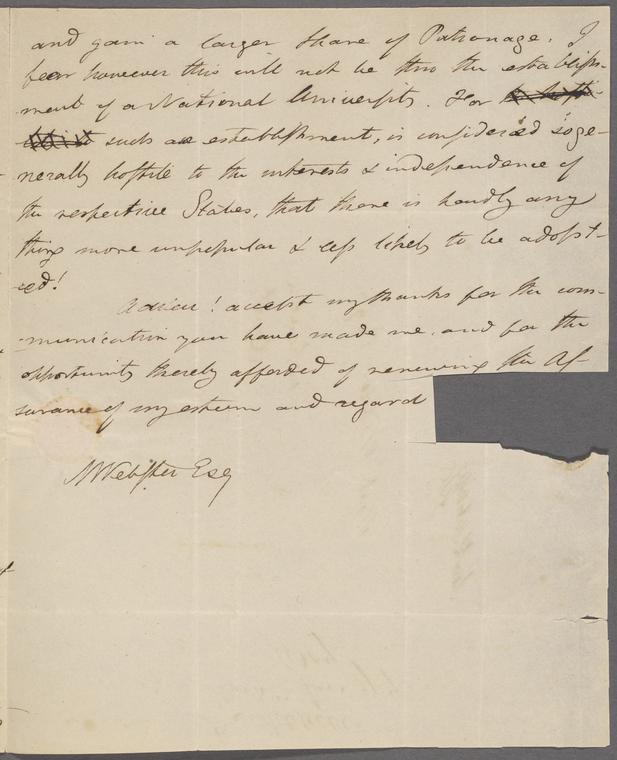 and gain a larger Share of Patronage. I
fear however this will not be thro the establish-
ment of a National University. For
such an establishment, is considered so ge-
nerally hostile to the interests & independence of
the respective States, that there is hardly any
thing more unpopular & less likely to be adopt-
ed!
Adieu! accept my thanks for the com-
munication you have made me, and for the
opportunity thereby afforded of renewing the As-
surance of my esteem and regard
N Webster Esq